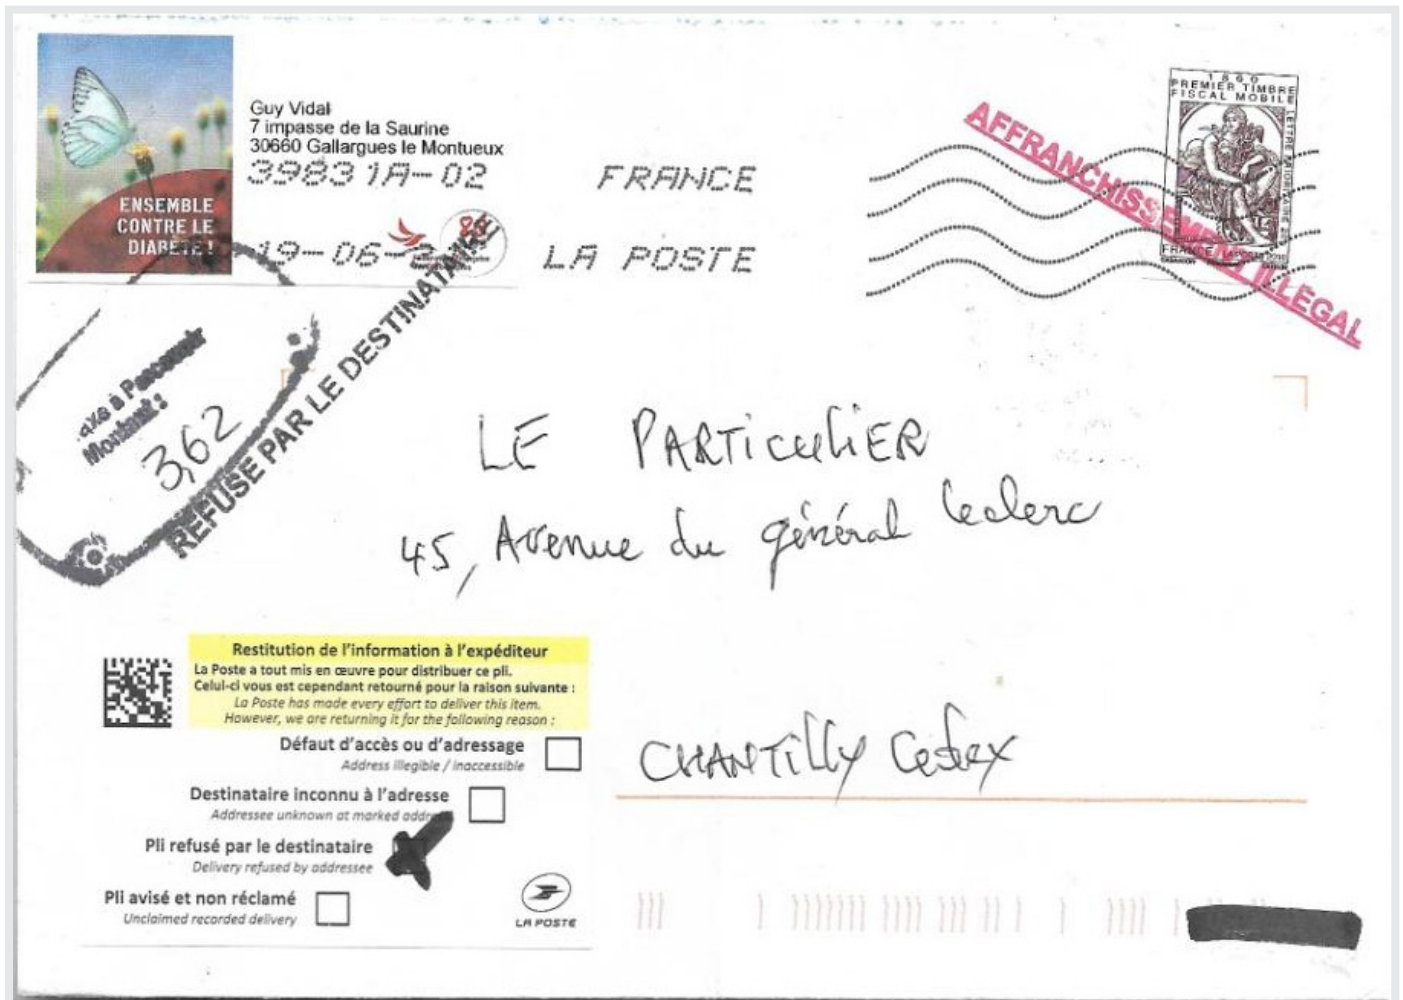 ENSEMBLE
CONTRE LE
DIABÈTE !
Guy Vidal
7 impasse de la Saurine
30660 Gallargues le Montueux
39831A-02
19-06-
FRANCE
LA POSTE
1860
PREMIER TIMBRE
FISCAL MOBILE
LETTRE PRIORITAIRE
FRANCE
AFFRANCHISSEMENT ILLÉGAL
Taxe à Percevoir
Montant :
3,62
REFUSE PAR LE DESTINATAIRE
LE PARTICULIER
45, Avenue du général Leclerc
CHANTILLY Cedex
Restitution de l'information à l'expéditeur
La Poste a tout mis en œuvre pour distribuer ce pli.
Celui-ci vous est cependant retourné pour la raison suivante :
La Poste has made every effort to deliver this item.
However, we are returning it for the following reason :
Défaut d'accès ou d'adressage
Address illegible / inaccessible
Destinataire inconnu à l'adresse
Addressee unknown at marked address
Pli refusé par le destinataire
Delivery refused by addressee
Pli avisé et non réclamé
Unclaimed recorded delivery
LA POSTE